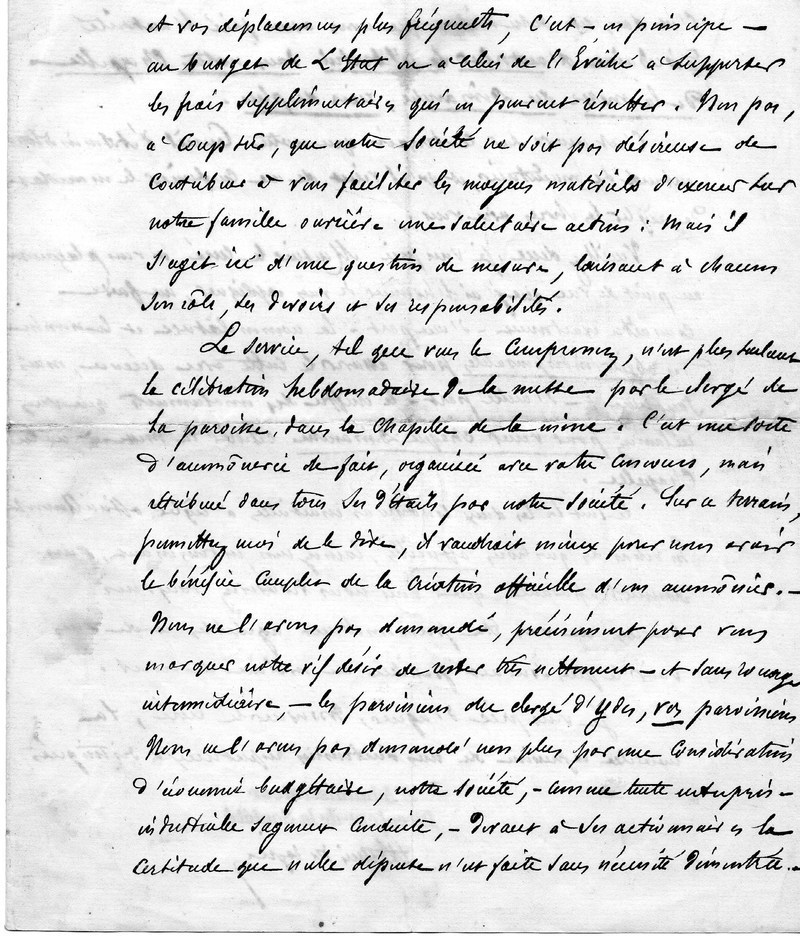 et vos déplacements plus fréquents, c'est – en principe –
au budget de l'Etat ou à celui de l'Evêché à supporter
les frais supplémentaires qui en peuvent résulter. Non pas,
à coup sûr, que notre Société ne soit pas désireuse de
contribuer à vous faciliter les moyens matériels d'exercer sur
notre famille ouvrière une salutaire action : mais il
s'agit ici d'une question de mesure, laissant à chacun
son rôle, ses devoirs et ses responsabilités.
Le service, tel que vous le comprenez, n'est plus seulement
la célébration hebdomadaire de la messe par le clergé de
la paroisse, dans la chapelle de la mine. C'est une sorte
d'aumônerie de fait, organisée avec votre concours, mais
rétribuée dans tous ses détails par notre Société. Sur ce terrain,
permettez moi de le dire, il vaudrait mieux pour nous avoir
le bénéfice complet de la création officielle d'un aumônier. –
Nous ne l'avons pas demandé, précisément pour vous
marquer notre vif désir de rester très nettement – et sans rouage
intermédiaire, – les paroissiens du clergé d'Ydes, vos paroissiens
Nous ne l'avons pas demandé non plus par une considération
d'économie budgétaire, notre Société, – comme toute entreprise
industrielle sagement conduite, – devant à ses actionnaires la
certitude que nulle dépense n'est faite sans nécessité démontrée. –